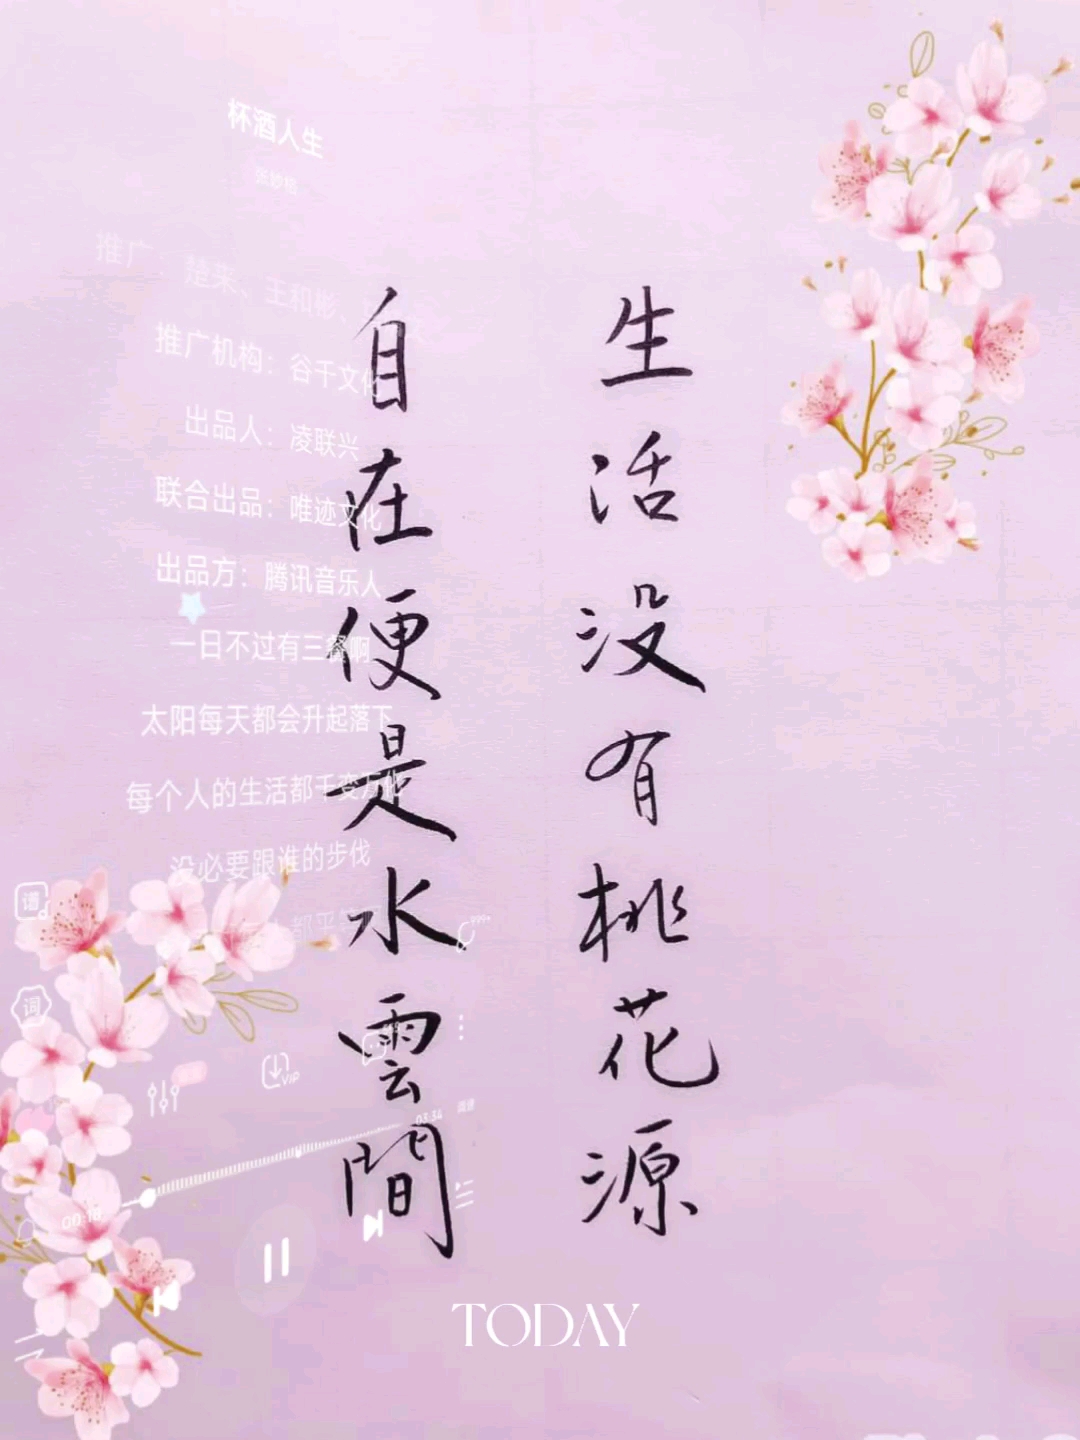 生活没有桃花源
自在便是水雲間
杯酒人生
推广机构：谷干文化
出品人：凌联兴
联合出品：唯迹文化
出品方：腾讯音乐人
一日不过有三餐啊
太阳每天都会升起落下
每个人的生活都千变万化
没必要跟谁的步伐
谱
词
999+
VIP
03:34
00:18
TODAY